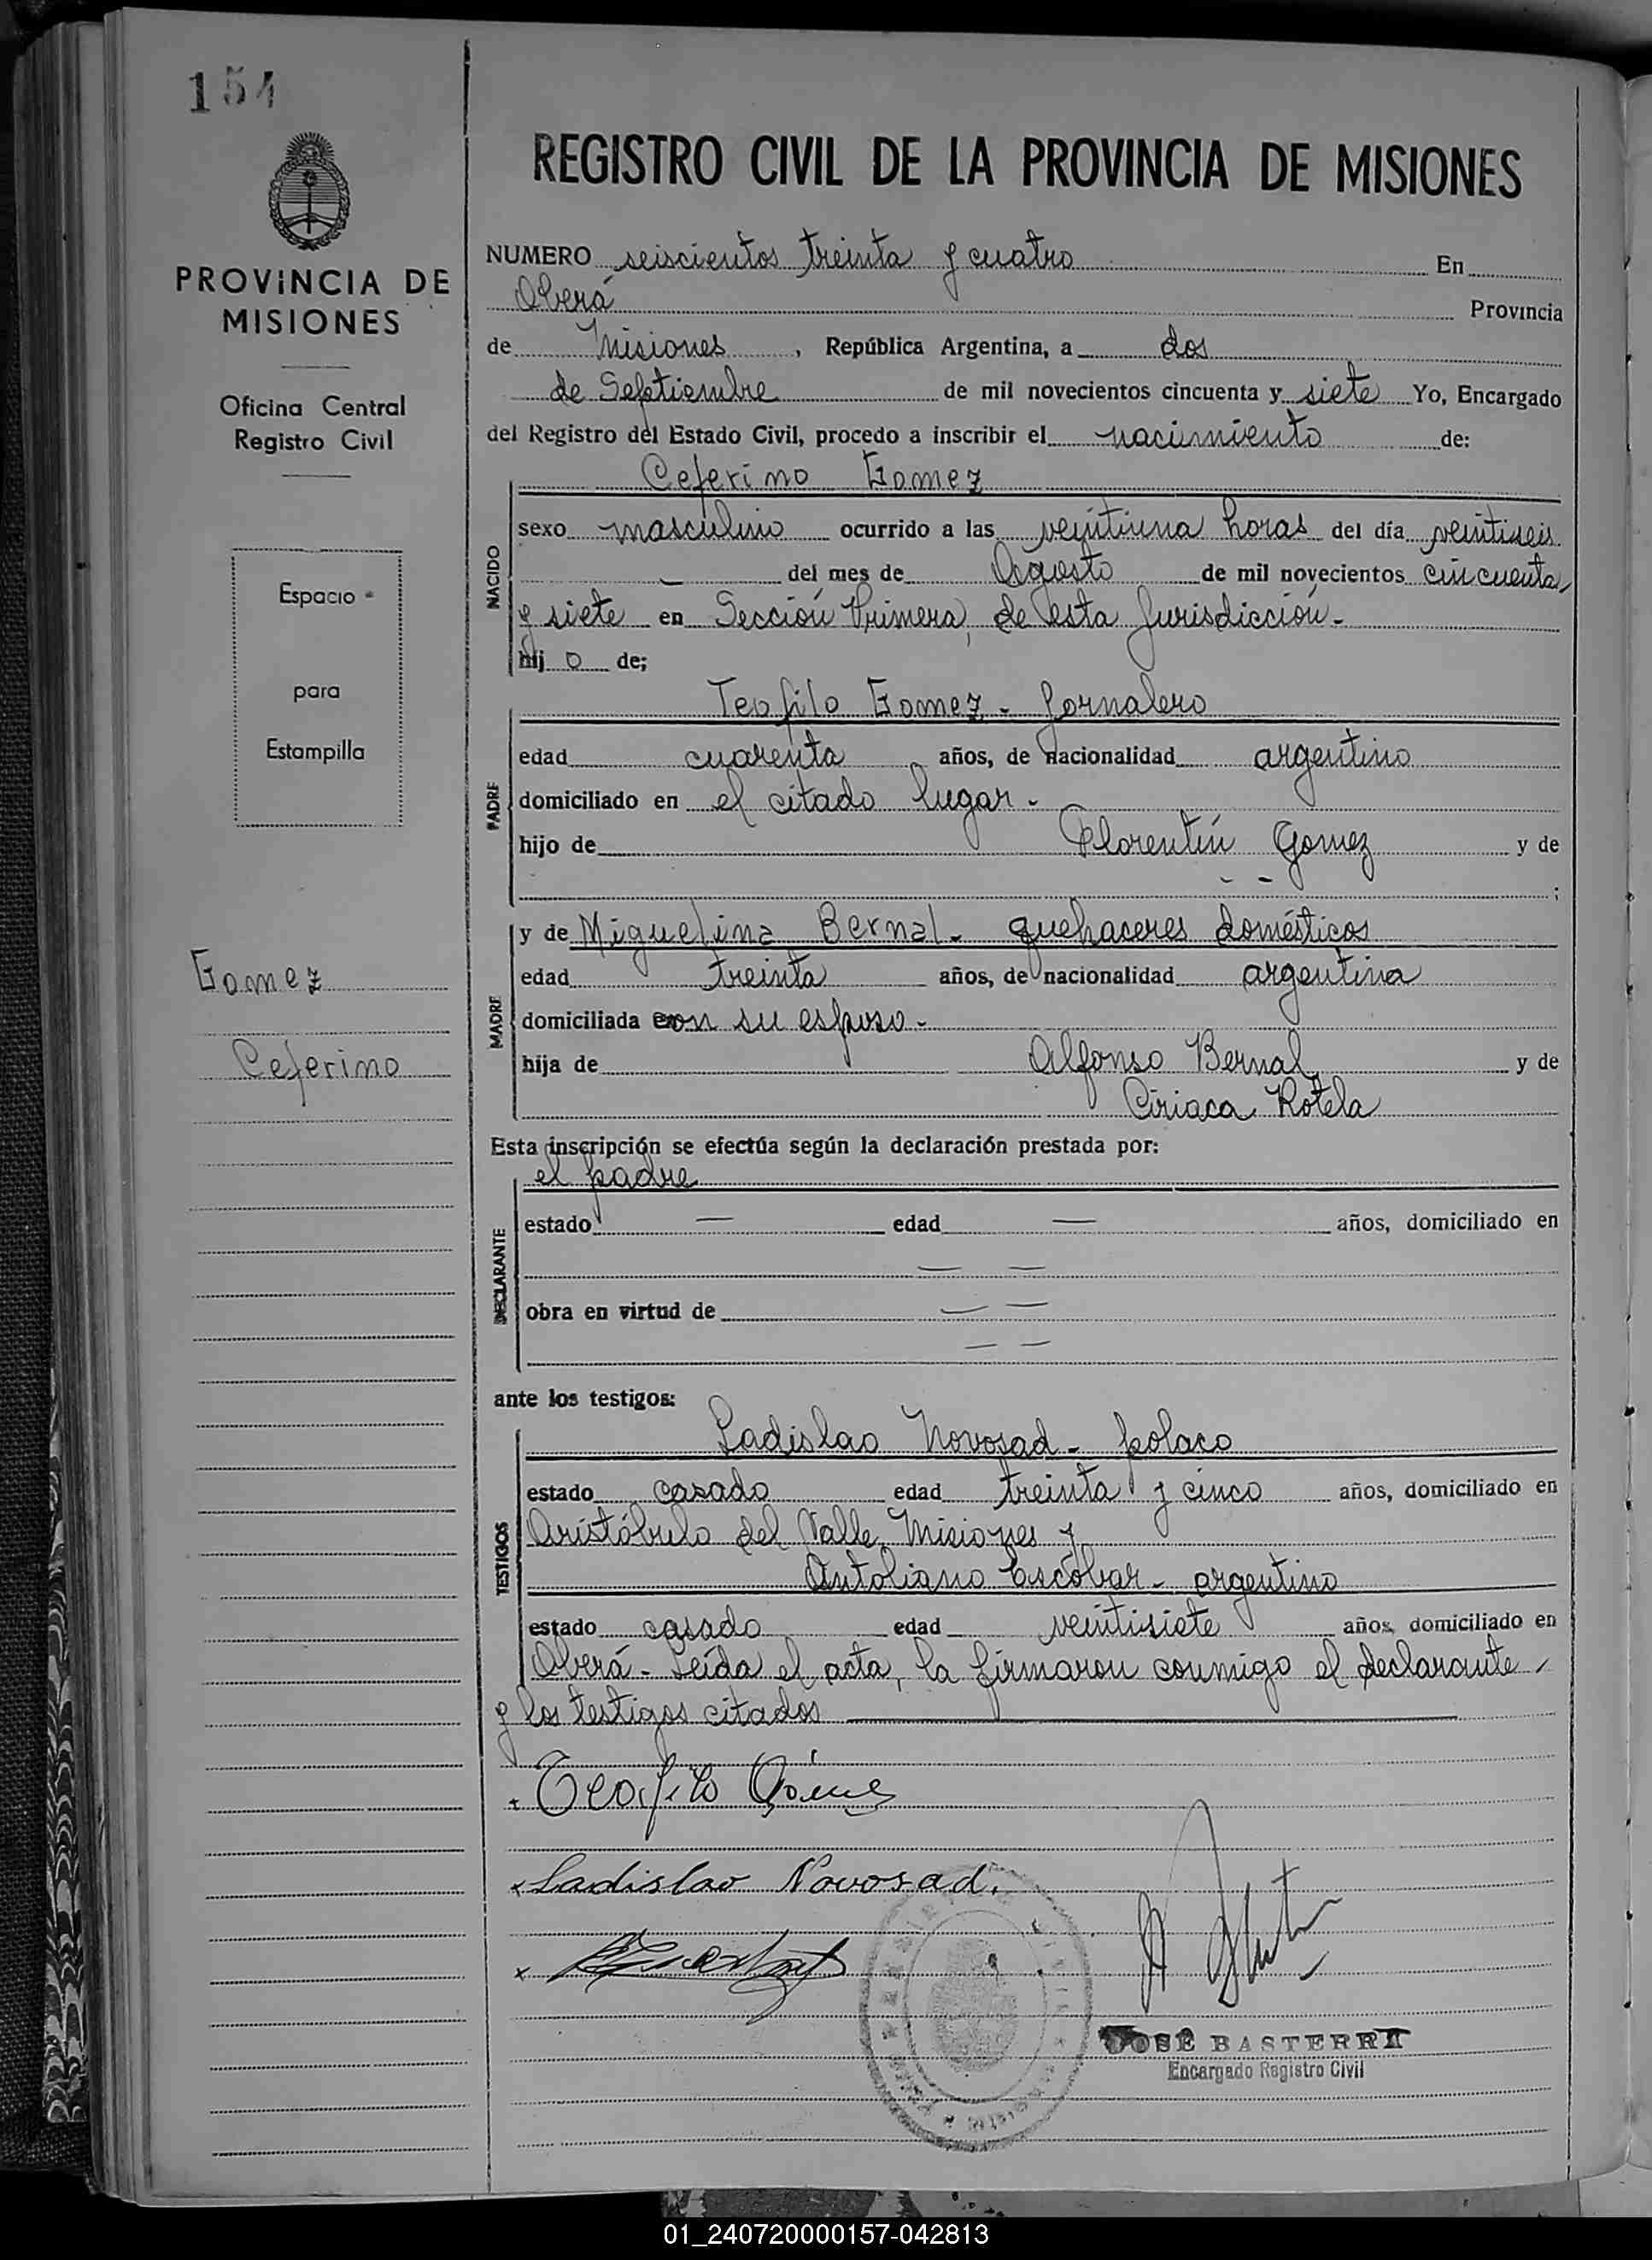 154
PROVINCIA DE
MISIONES
Oficina Central
Registro Civil
Espacio
para
Estampilla
Gomez
Ceferino
REGISTRO CIVIL DE LA PROVINCIA DE MISIONES
NUMERO seiscientos treinta y cuatro En
Oberá Provincia
de Misiones, República Argentina, a dos
de Septiembre de mil novecientos cincuenta y siete Yo, Encargado
del Registro del Estado Civil, procedo a inscribir el nacimiento de:
Ceferino Gomez
NACIDO
sexo masculino ocurrido a las veintiuna horas del día veintiseis
del mes de Agosto de mil novecientos cincuenta
y siete en Sección Primera, de esta Jurisdicción.-
hij o de;
Teofilo Gomez - Jornalero
PADRE
edad cuarenta años, de nacionalidad argentino
domiciliado en el citado lugar.-
hijo de Florentín Gomez y de
- - ;
y de Miguelina Bernal - quehaceres domésticos
MADRE
edad treinta años, de nacionalidad argentina
domiciliada con su esposo.-
hija de Alfonso Bernal y de
Ciriaca Rotela
Esta inscripción se efectúa según la declaración prestada por:
el padre
DECLARANTE
estado — edad — años, domiciliado en
— —
obra en virtud de — —
— —
ante los testigos:
Ladislao Novosad - polaco
TESTIGOS
estado casado edad treinta y cinco años, domiciliado en
Aristóbulo del Valle, Misiones y
Antoliano Escobar - argentino
estado casado edad veintisiete años, domiciliado en
Oberá.- Leída el acta, la firmaron conmigo el declarante
y los testigos citados
Teofilo Gómez
x Ladislao Novosad.
x
JOSÉ BASTERRA
Encargado Registro Civil
01_240720000157-042813